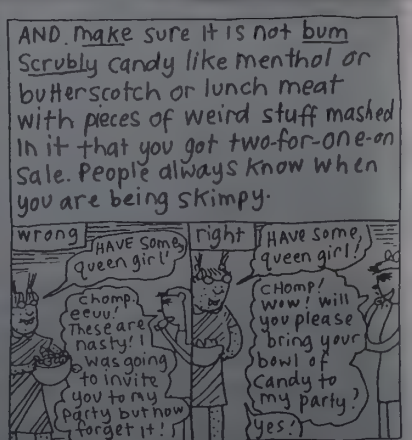 AND. make sure it is not bum
scrubly candy like menthol or
butterscotch or lunch meat
with pieces of weird stuff mashed
in it that you got two-for-one-on
sale. People always know when
you are being skimpy.
wrong
HAVE SOME,
queen girl!
chomp.
eeuu!
These are
nasty! I
was going
to invite
you to my
party but now
forget it!
right
HAVE SOME,
queen girl!
CHOMP!
WOW! will
you please
bring your
bowl of
candy to
my party?
yes!